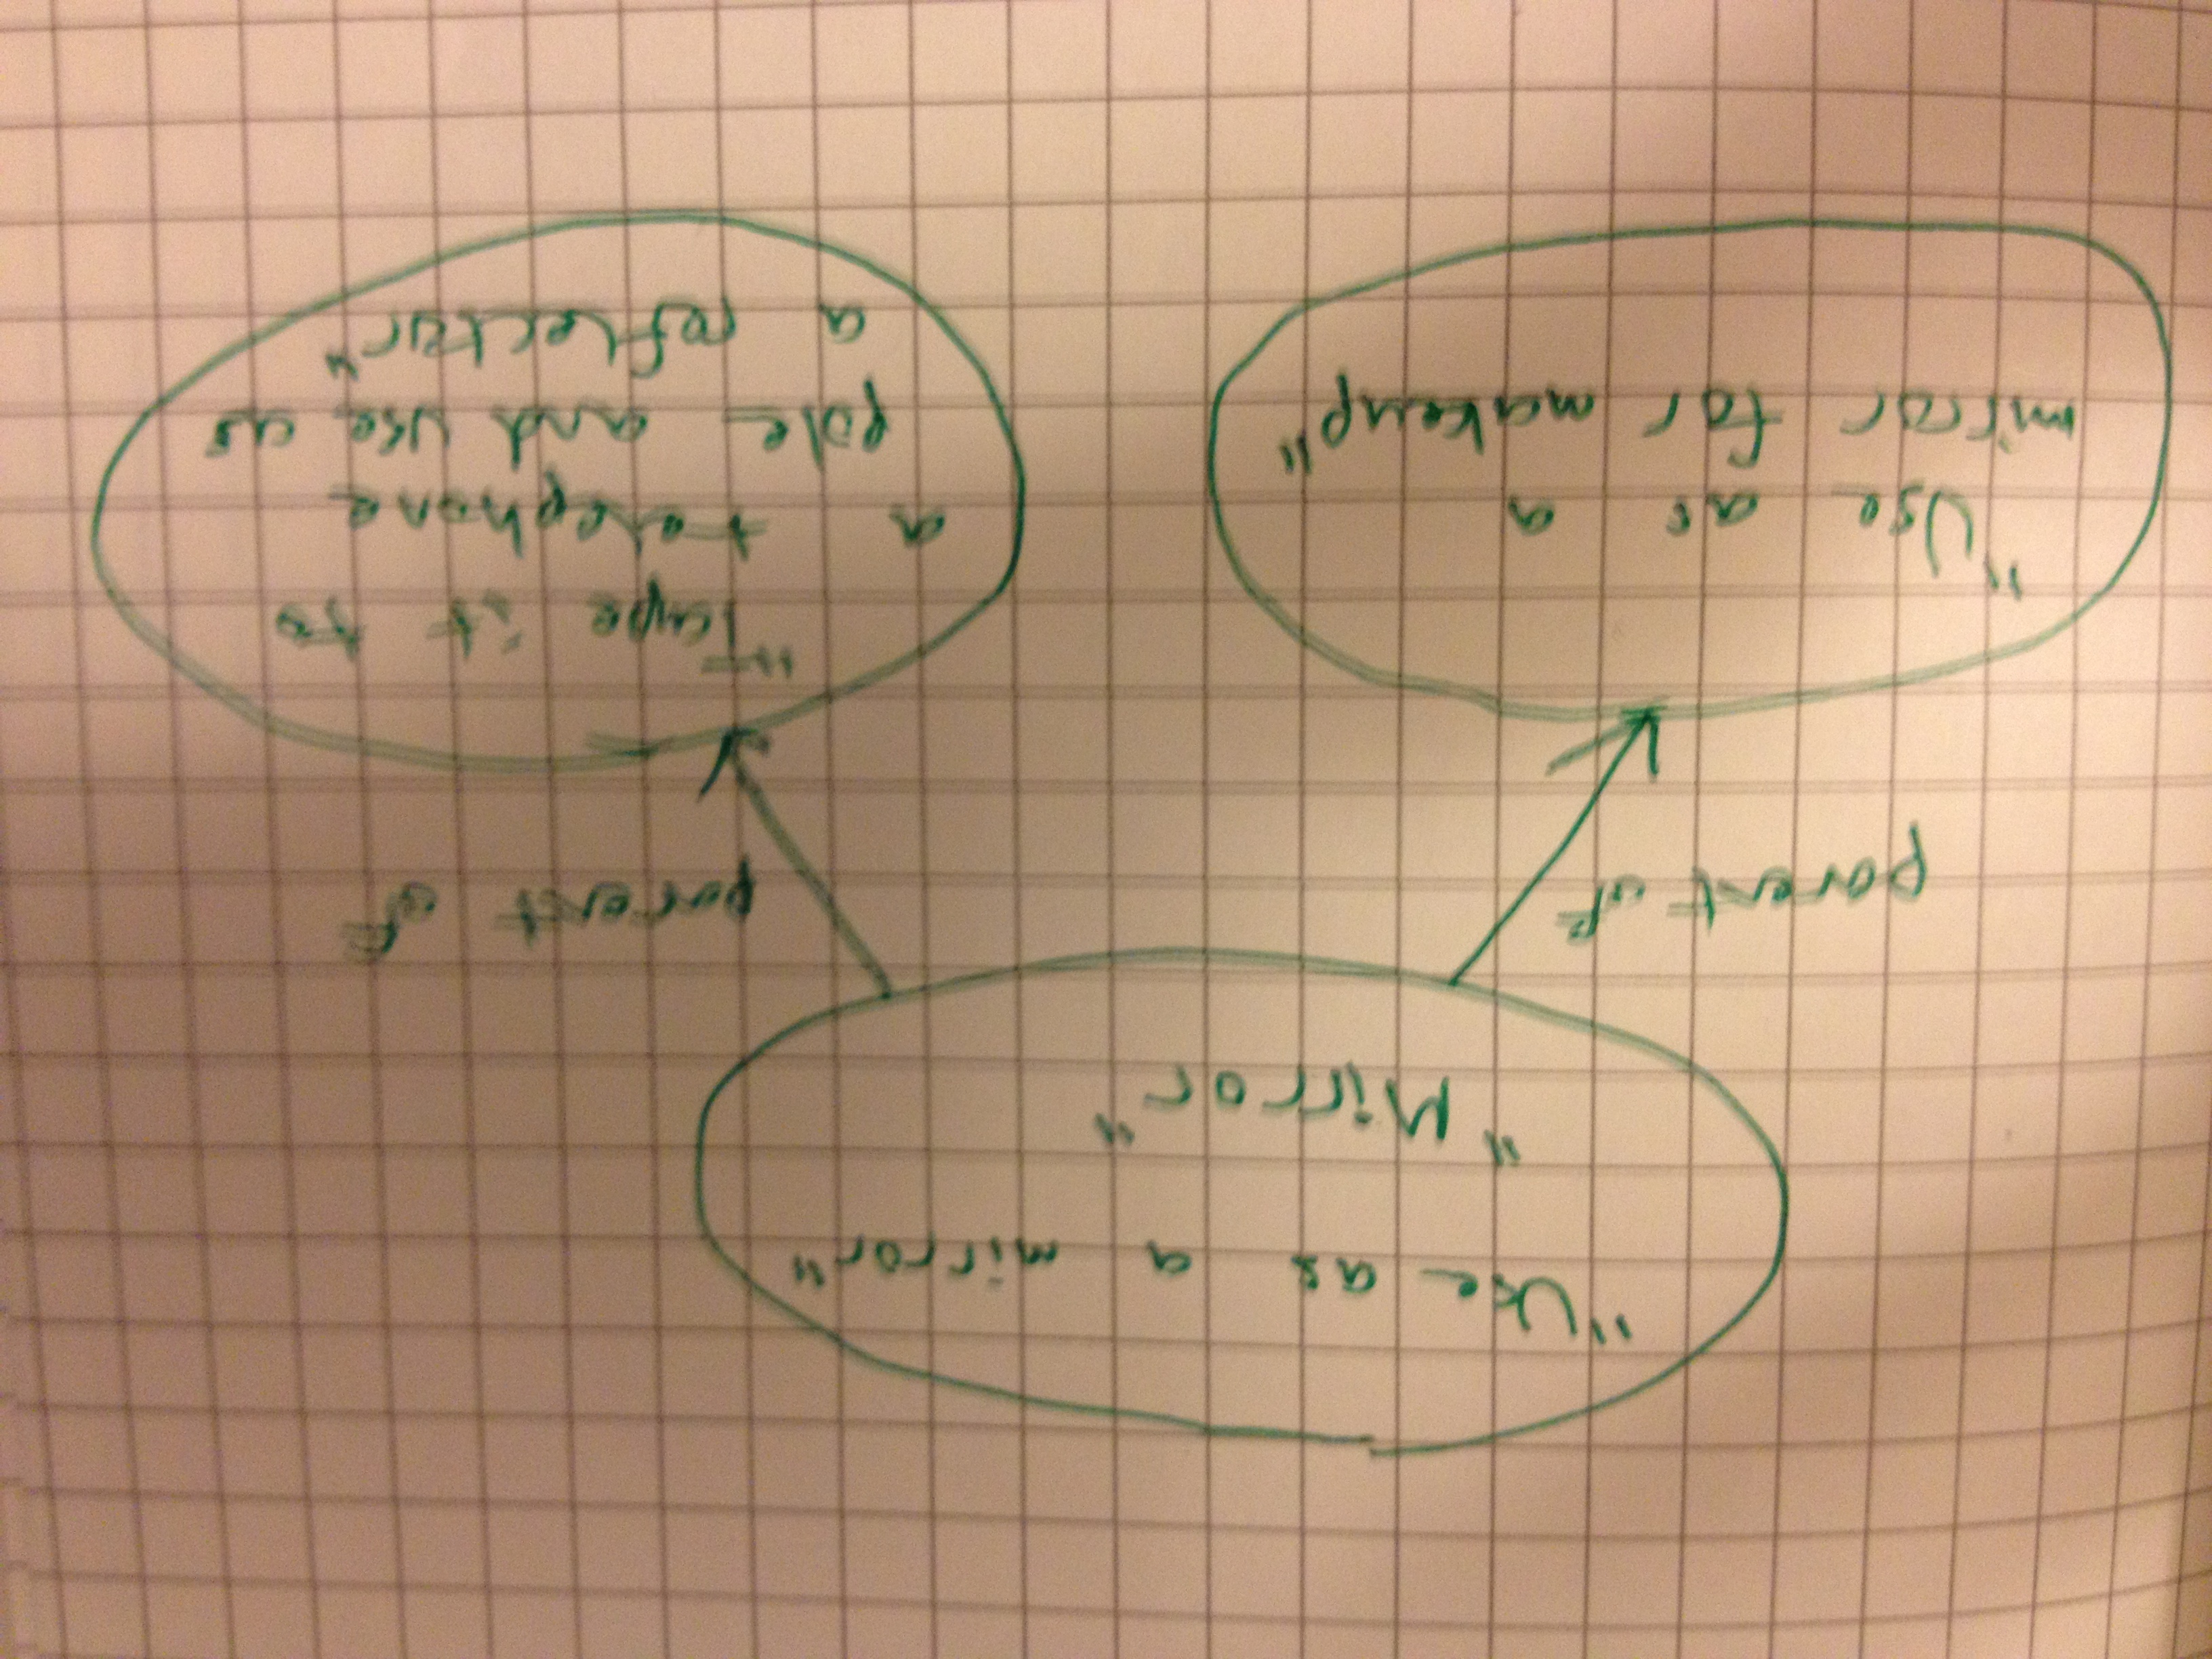 "Use as a mirror"
"Mirror"
parent of
parent of
"Use as a
mirror for makeup"
"Tape it to
a telephone
pole and use as
a reflector"